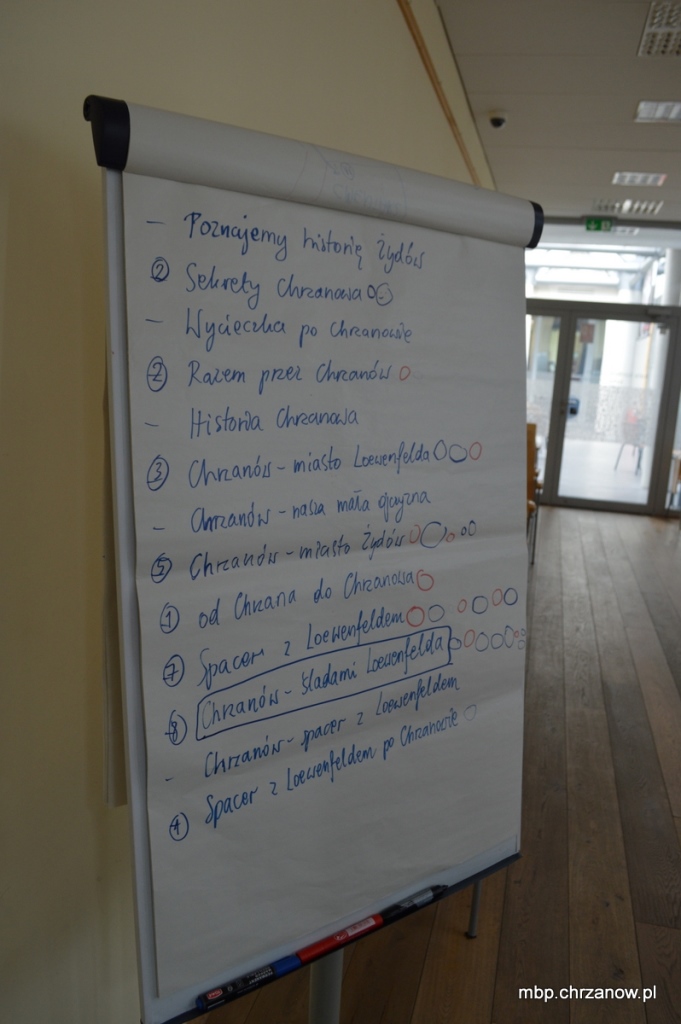 - Poznajemy historię Żydów
② Sekrety Chrzanowa
- Wycieczka po Chrzanowie
② Razem przez Chrzanów
- Historia Chrzanowa
③ Chrzanów - miasto Loewenfelda
- Chrzanów - nasza mała ojczyzna
⑤ Chrzanów - miasto Żydów
① od Chrzana do Chrzanowa
⑦ Spacer z Loewenfeldem
⑧ Chrzanów - śladami Loewenfelda
- Chrzanów - spacer z Loewenfeldem
① Spacer z Loewenfeldem po Chrzanowie
mbp.chrzanow.pl